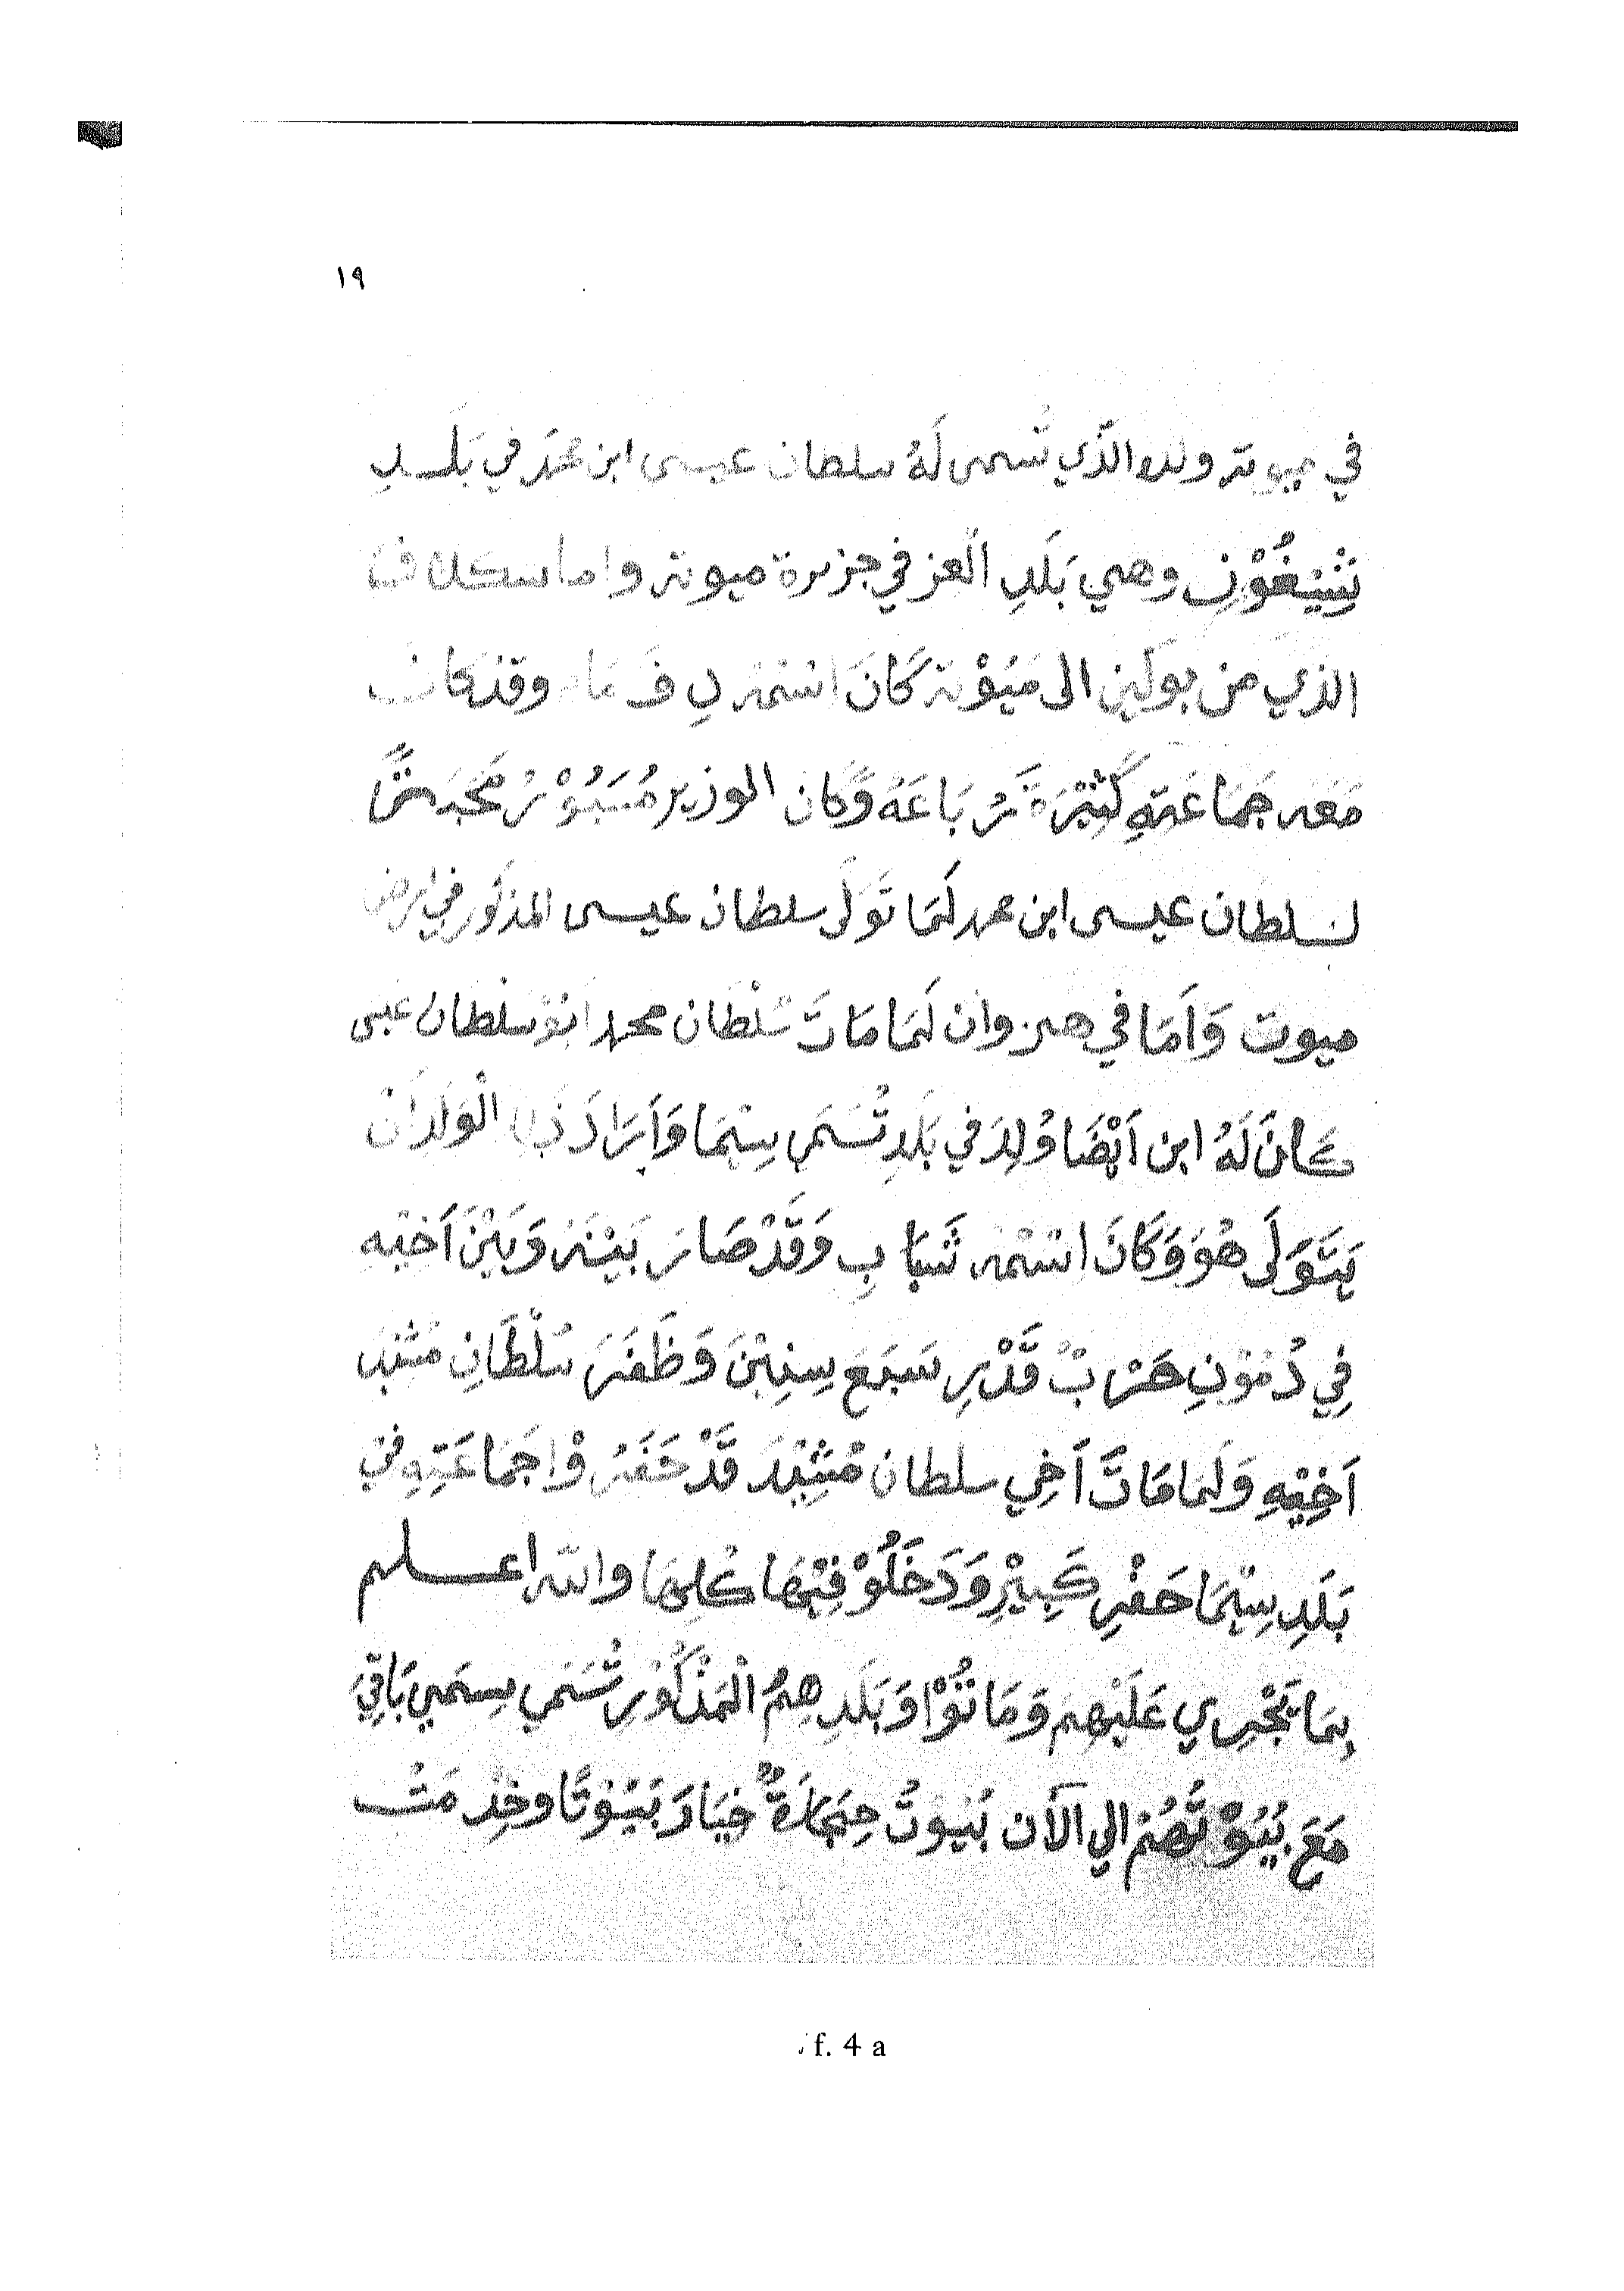 ١٩
في ميوته ولده الذي تُسمى لَهُ سلطان عيسى ابن محمد في بَلَدِ
وهي بَلَدِ العز في جزيرة ميوته واما سكلاف
الذي من بولَينِ الى مَيُوْتة كَانَ اسْمه وقد كان
مَعَه جَمَاعَتِهِ كَثِيْرَة وَكان الوزير
لسلطان عيسى ابن محمد لَمَا تَوَلَّى سلطان عيسى المذكور في ارض
ميوت وَاَمَا في هنزوان لَمَا مَاتَ سُلْطَان محمد ابُو سلْطان عيسى
كَانَ لَهُ ابن اَيْضَا وُلِدَ في بَلَدِ تُسَمَى سِيْمَا وَاَرَادَ ذَا الْوَلَدَانْ
يَتَوَلَى هُوَ وَكَانَ اسْمُه شَبَابِ وَقَدْ صَارَ بَيْنَهُ وَبَيْنَ اَخيْه
فِي دُمُوْنِ حَرْبٌ قَدْرِ سَبَعَ سِنِيْنَ وَظَفَرَ سُلْطَانِ
اَخِيْهِ وَلَمَا مَاتَ اَخِي سلطان قَدْ حَفَرُوْا جَمَاعَتِهِ فيْ
بَلَدِ سِيْمَا حَفْرِ كَبِيْرِ وَدَخَلُوْ فِيْهَا كُلِهَا والله اعلم
بِمَا يَجْرِي عَلَيْهِم وَمَاتُوْا وَبَلَدِهِمُ الْمَذْكُوْرِ تُسَمَي سِيمَي بَاقِيَ
مَعَ بُيُوْتَهُمْ الي الآن بُيُوتُ حِجَارَةٌ خِيَارَ بَيُوْتًا وخِدمَتْ
f. 4 a